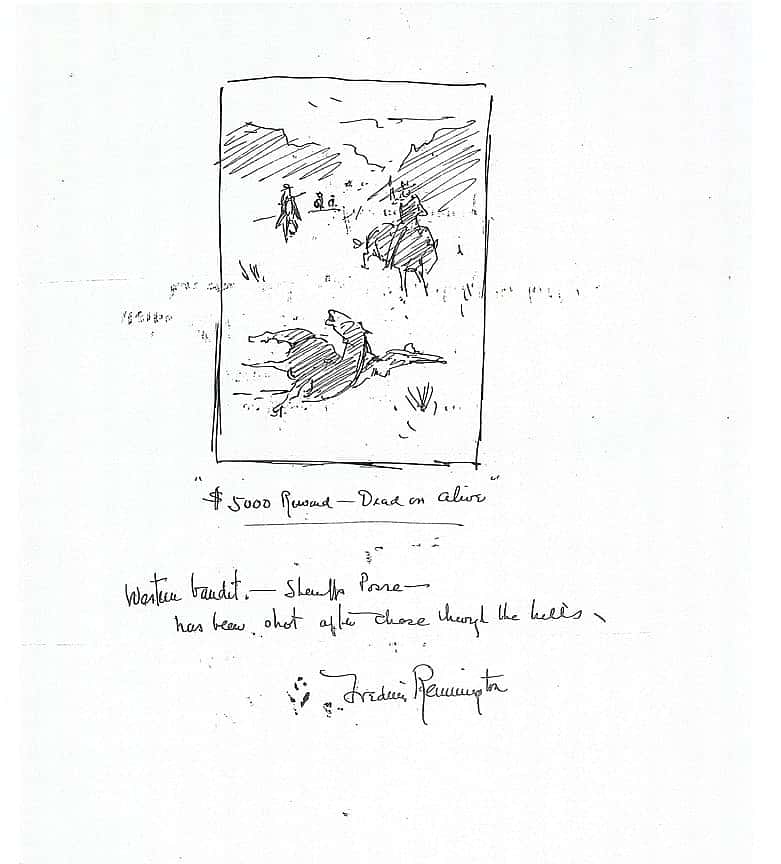 "$5000 Reward — Dead or alive"
Western bandit. — Sheriffs Posse —
has been shot after chase through the hills
Frederic Remington